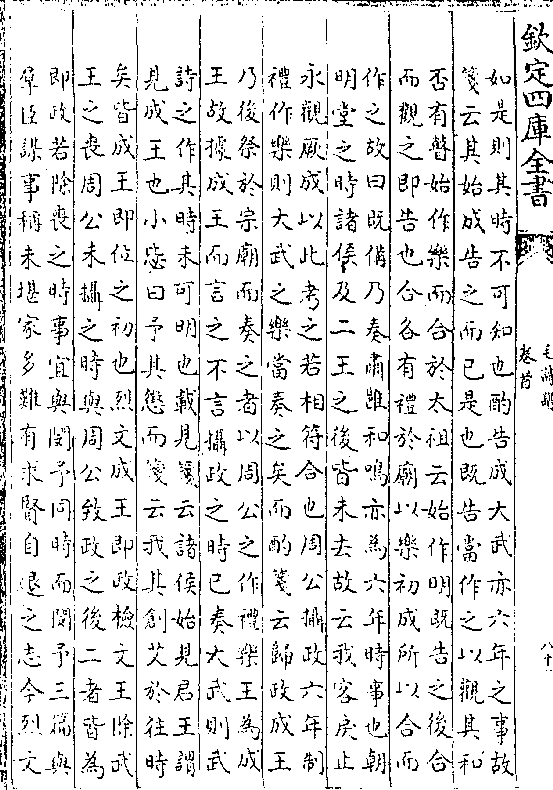 欽定四庫全書
毛詩
卷首
如是則其時不可知也酌告成大武亦六年之事故
箋云其始成告之而已是也既告當作之以觀其和
否有瞽始作樂而合於太祖云始作明既告之後合
而觀之即告也合各有禮於廟以樂初成所以合而
作之故曰既備乃奏肅雝和鳴亦為六年時事也朝
明堂之時諸侯及二王之後皆未去故云我客戾止
永觀厥成以此考之若相符合也周公攝政六年制
禮作樂則大武之樂當奏之矣而酌箋云歸政成王
乃後祭於宗廟而奏之者以周公之作禮樂王為成
王故據成王而言之不言攝政之時已奏大武則武
詩之作其時未可明也載見箋云諸侯始見君王謂
見成王也小毖曰予其懲而箋云我其創艾於往時
矣皆成王即位之初也烈文成王即政檢文王除武
王之喪周公未攝之時與周公致政之後二者皆為
即政若除喪之時事宜與閔予同時而閔予三篇與
羣臣謀事稱未堪家多難有求賢自退之志今烈文